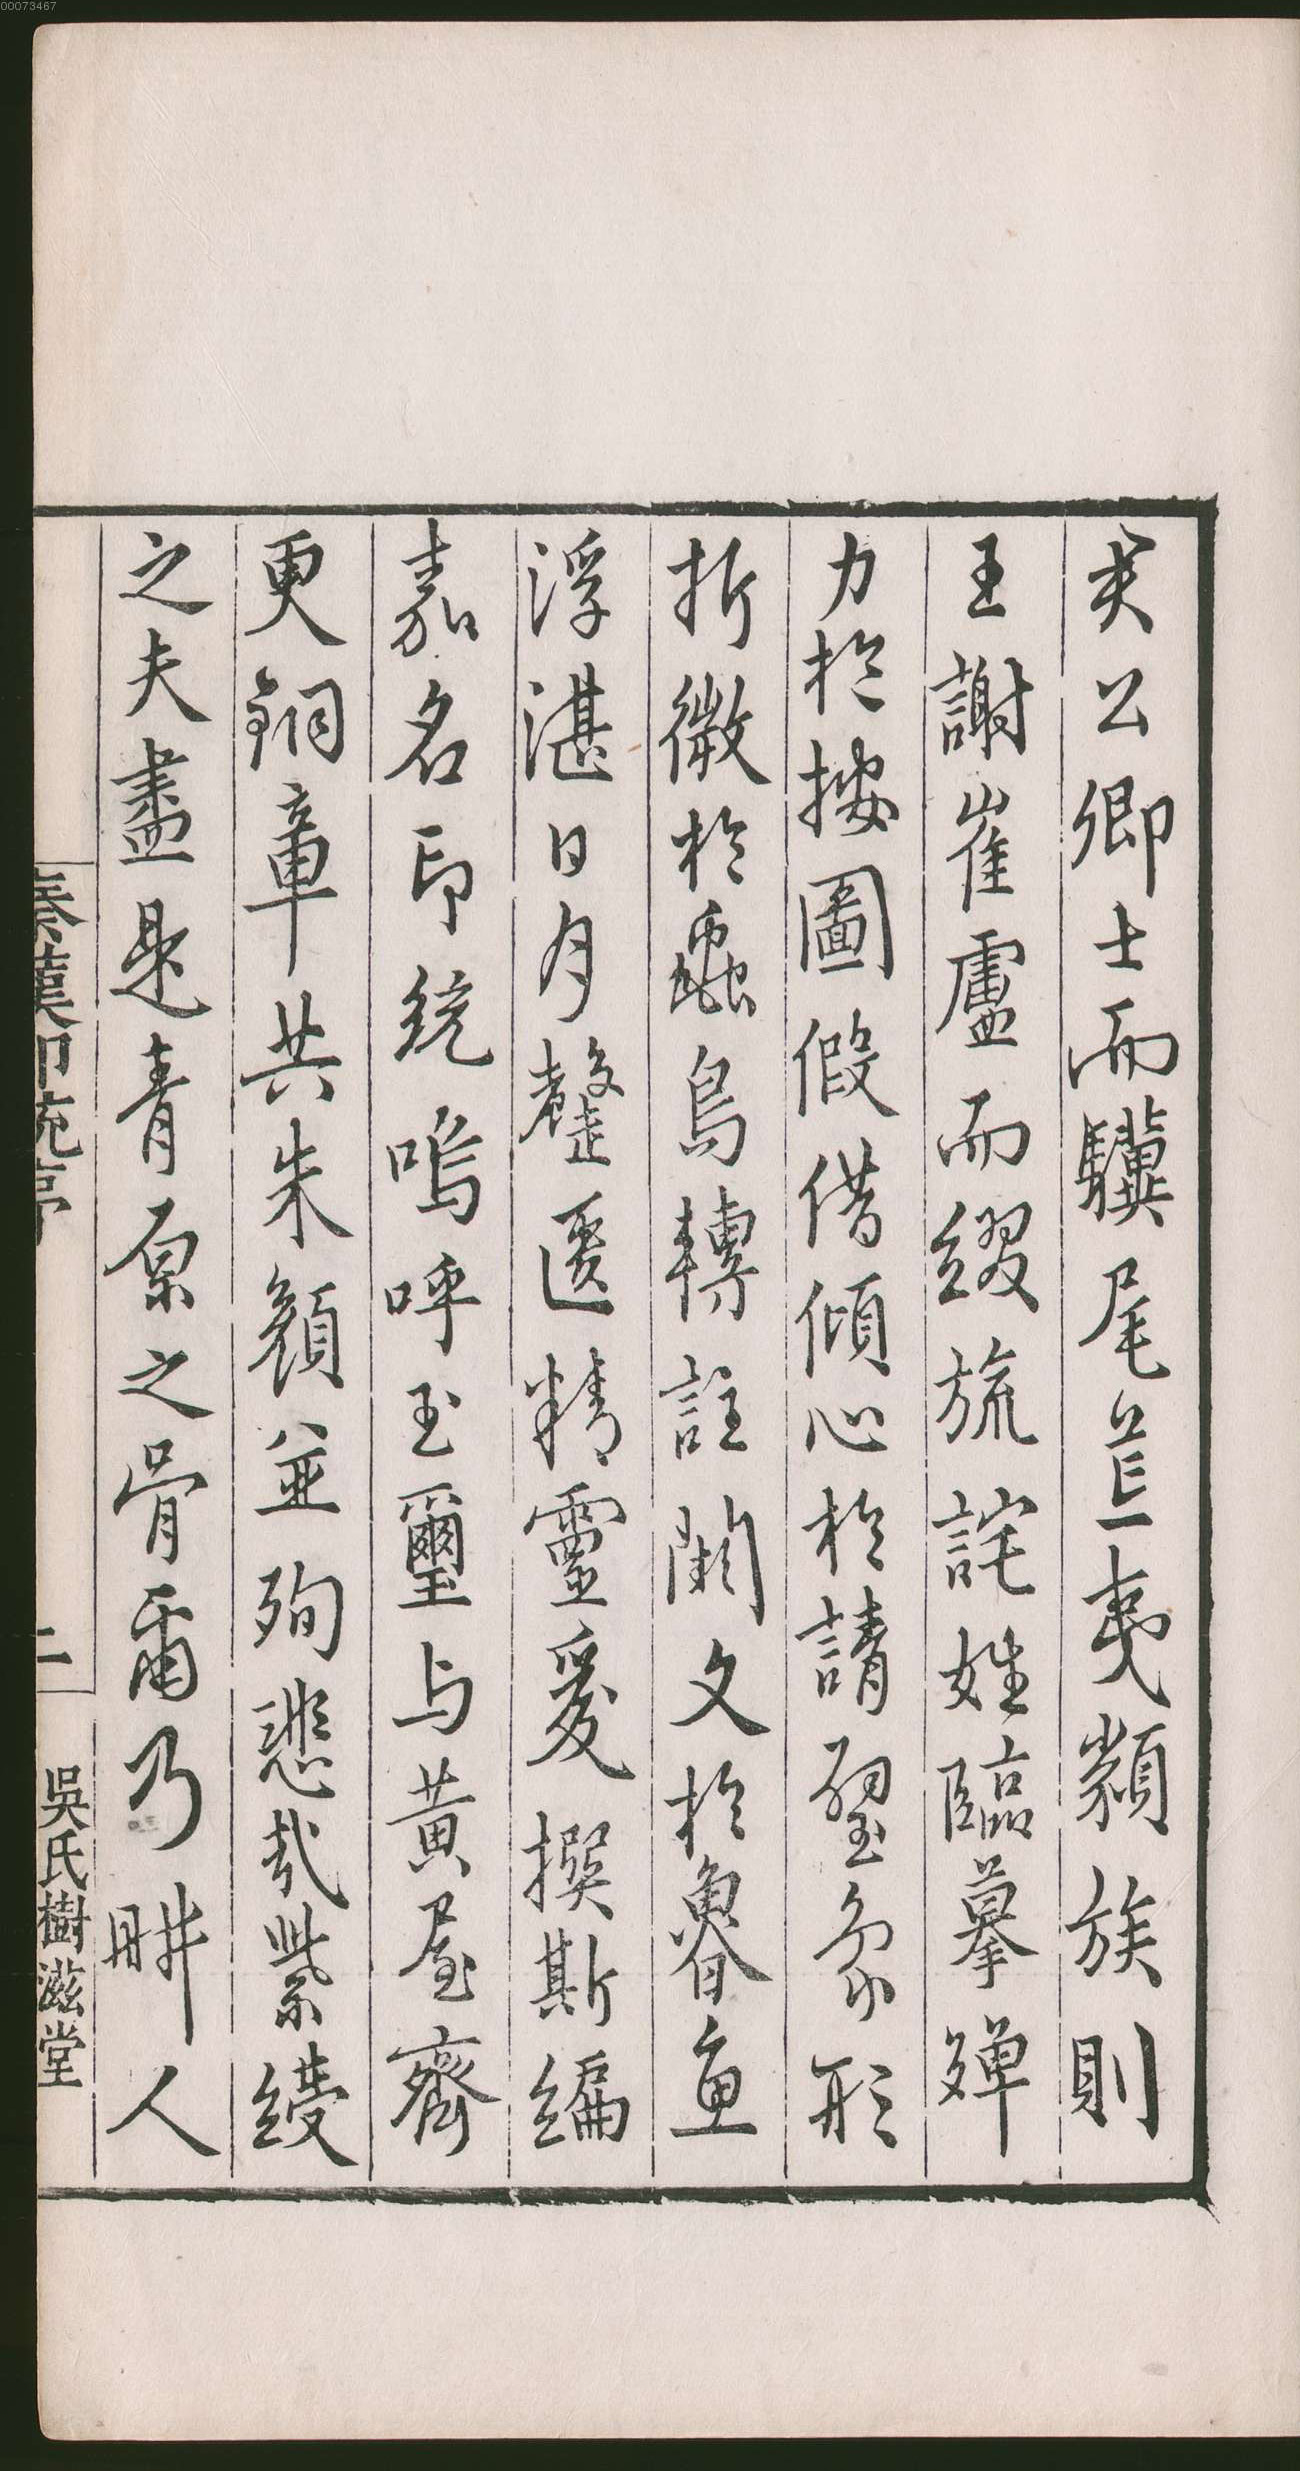 美公卿士而驥尾芒夷纇族則
王謝崔盧而綴旒詫姓臨摹殫
力於按圖假借傾心於請璧象形
折徵於蟲鳥轉註闕文於魯魚
浮湛日月聱匽精靈爰撰斯編
嘉名印統嗚呼玉璽与黃屋齊
更銅章共朱顏並殉悲哉紫綬
之夫盡是青原之骨爾乃畊人
秦漢印統序
二
吳氏樹滋堂
00073467